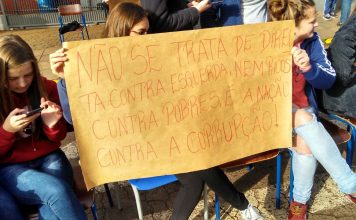 NÃO SE TRATA DE DIREI
TA CONTRA ESQUERDA, NEM RICOS
CONTRA POBRES, É A NAÇÃO
CONTRA A CORRUPÇÃO!